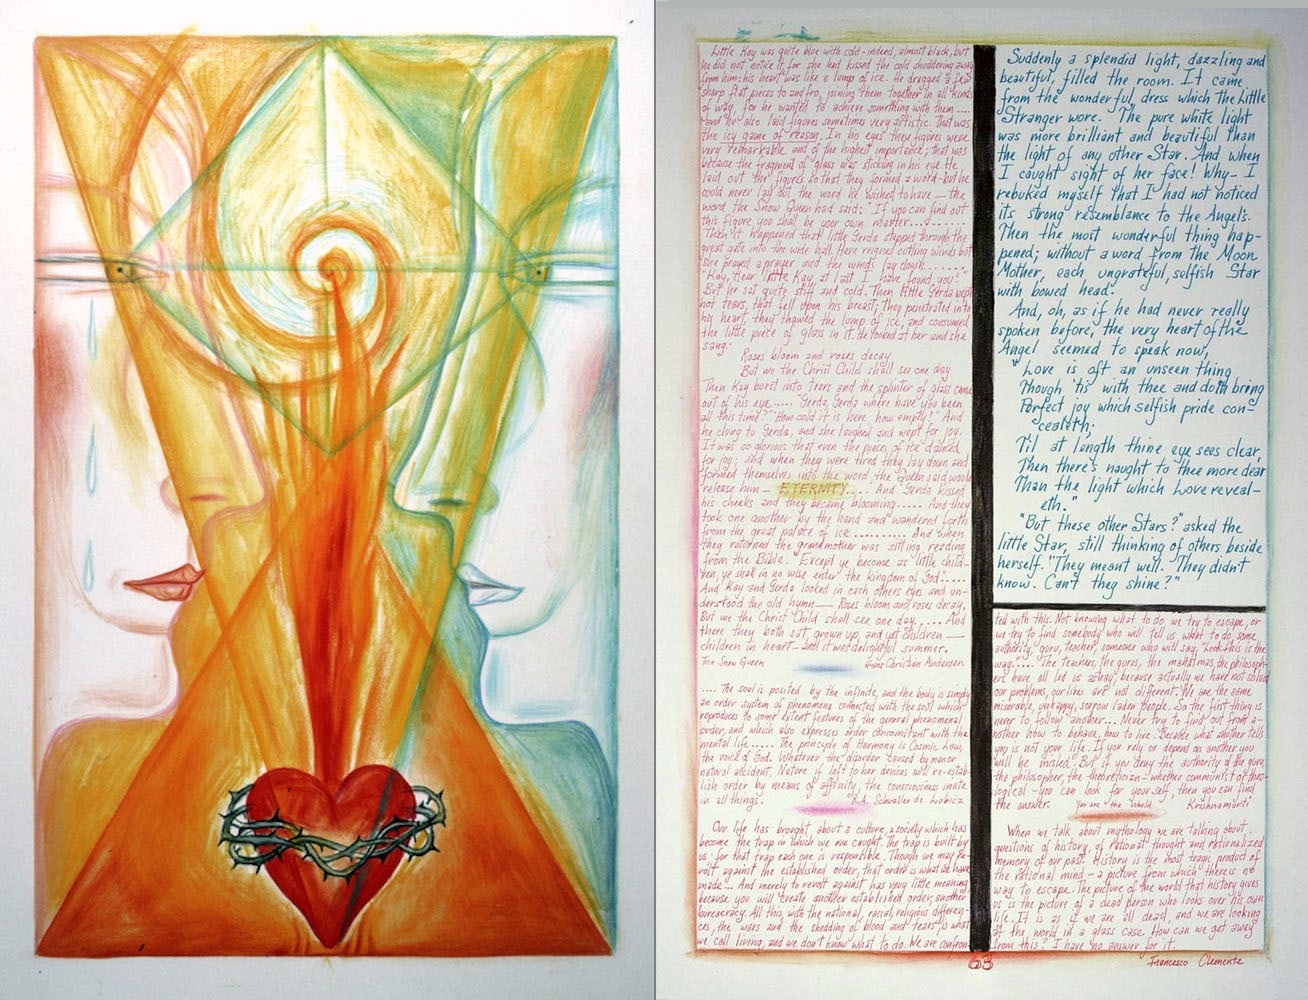 Little Kay was quite blue with cold - indeed, almost black, but
he did not notice it, for she had kissed the cold shuddering away
from him; his heart was like a lump of ice. He dragged a few
sharp flat pieces to and fro, joining them together in all kinds
of way, for he wanted to achieve something with them ....
and he also laid figures sometimes very artistic. That was
the icy game of reason. In his eyes the figures were
very remarkable and of the highest importance; that was
because the fragment of glass was sticking in his eye. He
laid out the figures so that they formed a word - but he
could never lay out the word he wished to have — the
word the Snow Queen had said; "If you can find out
this figure you shall be your own master........
Then it happened that little Gerda stepped through the
great gate into the wide hall. Here reigned cutting winds but
she prayed a prayer and the winds lay down........
"Kay, dear little Kay at last I have found you!"
But he sat quite still and cold. Then little Gerda wept
hot tears, that fell upon his breast; They penetrated into
his heart, they thawed the lump of ice, and consumed
the little piece of glass in it. He looked at her and she
sang:
Roses bloom and roses decay
But we the Christ Child shall see one day
Then Kay burst into tears and the splinter of glass came
out of his eye..... "Gerda, Gerda where have you been
all this time?" "How cold it is here, how empty!" And
he clung to Gerda, and she laughed and wept for joy.
It was so glorious that even the pieces of ice danced
for joy; and when they were tired they lay down and
formed themselves into the word, the Queen said would
release him — ETERNITY.... And Gerda kissed
his cheeks and they became blooming..... And they
took one another by the hand and wandered forth
from the great palace of ice .......... And when
they returned the grandmother was sitting reading
from the Bible: "Except ye become as little child-
ren, ye shall in no wise enter the kingdom of God".....
And Kay and Gerda looked in each others eyes and un-
derstood the old hymn — Roses bloom and roses decay,
But we the Christ Child shall see one day.... And
there they both sat, grown up, and yet children —
children in heart — and it was delightful summer.
The Snow Queen Hans Christian Andersen
.... The soul is posited by the infinite, and the body is simply
an order system of phenomena connected with the soul which
reproduces to some extent features of the general phenomenal
order, and which also expresses order concomitant with the
mental life..... The principle of Harmony is Cosmic Law,
the voice of God. Whatever the disorder caused by man or
natural accident, Nature if left to her devices will re-estab-
lish order by means of affinity, the consciousness innate
in all things. R.A. Schwaller de Lubicz
Our life has brought about a culture, a society which has
become the trap in which we are caught. The trap is built by
us - for that trap each one is responsible. Though we may re-
volt against the established order, that order is what we have
made... And merely to revolt against has very little meaning
because you will create another established order, another
bureaucracy. All this, with the national, racial, religious differen-
ces, the wars and the shedding of blood and tears is what
we call living, and we don't know what to do. We are confron-
Suddenly a splendid light, dazzling and
beautiful, filled the room. It came
from the wonderful dress which the Little
Stranger wore. The pure white light
was more brilliant and beautiful than
the light of any other Star. And when
I caught sight of her face! Why - I
rebuked myself that I had not noticed
its strong resemblance to the Angel's.
Then the most wonderful thing hap-
pened; without a word from the Moon
Mother, each ungrateful, selfish Star
with bowed head.
And, oh, as if he had never really
spoken before, the very heart of the
Angel seemed to speak now,
"Love is oft an unseen thing
Though 'tis with thee and doth bring
Perfect joy which selfish pride con-
cealeth;
Til at length thine eye sees clear,
Then there's naught to thee more dear
Than the light which Love reveal-
eth."
"But these other Stars?" asked the
little Star, still thinking of others beside
herself. "They meant well. They didn't
know. Can't they shine?"
ted with this. Not knowing what to do we try to escape, or
we try to find somebody who will tell us what to do, some
authority, guru, teacher, someone who will say, "Look this is the
way.".... The teachers, the gurus, the mahatmas, the philosoph-
ers have all led us astray because actually we have not solved
our problems, our lives are not different. We are the same
miserable, unhappy, sorrow laden people. So the first thing is
never to follow another... Never try to find out from a-
nother how to behave, how to live. Because what another tells
you is not your life. If you rely or depend on another you
will be misled. But if you deny the authority of the guru,
the philosopher, the theoretician - whether communist or theo-
logical - you can look for yourself, then you can find
the answer. You are the World Krishnamurti
When we talk about mythology we are talking about
questions of history, of rational thought and rationalized
memory of our past. History is the most tragic product of
the rational mind - a picture from which there is no
way to escape. The picture of the world that history gives
us is the picture of a dead person who looks over his own
life. It is as if we are all dead, and we are looking
at the world in a glass case. How can we get away
from this? I have no answer for it.
63
Francesco Clemente